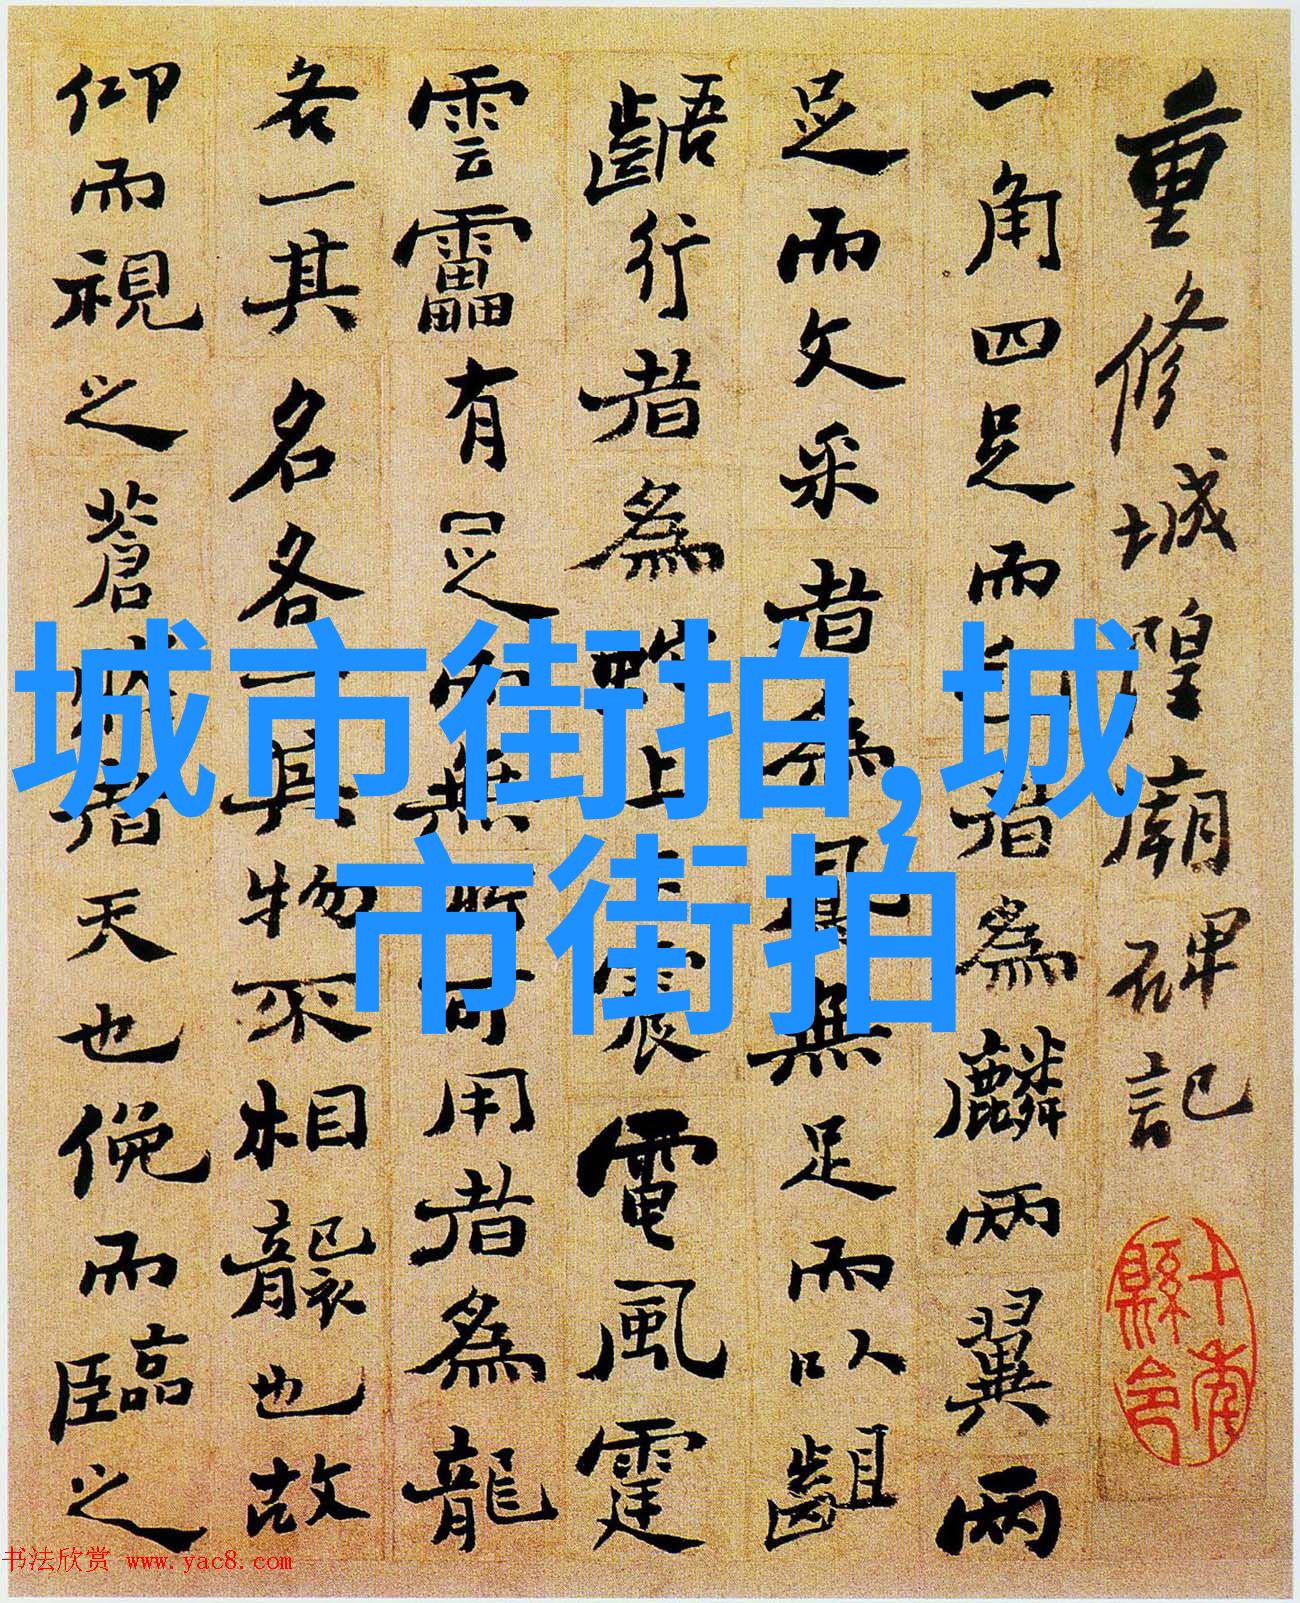 重修城隍廟碑記
一角四足而毛者為麟兩翼兩
足而文采者為鳳無足而以齟
齬行者為蛇上下震電風霆
雲靁有足而無所可用者為龍
各一其名各一其物不相襲也故
仰而視之蒼然者天也俛而臨之
城市街拍,城
市街拍
书法欣赏 www.yac8.com